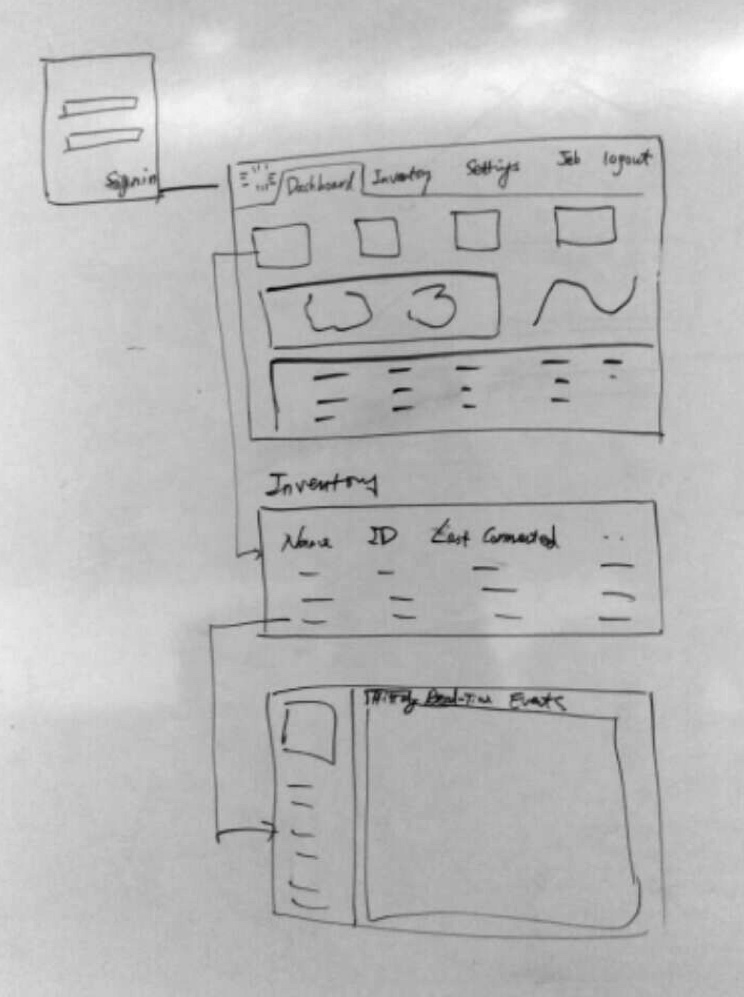 Signin
Dashboard Inventory Settings Job logout
Inventory
Name ID Last Connected ..
History Real-Time Events